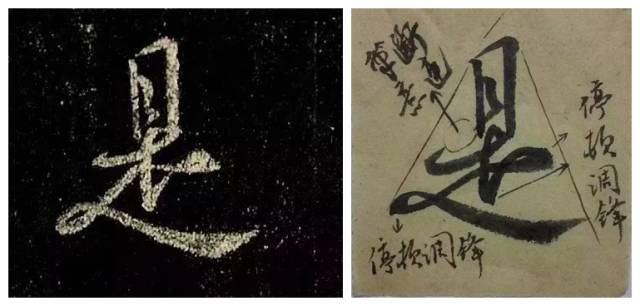 是
笔断
意连
是
停顿调锋
停顿调锋